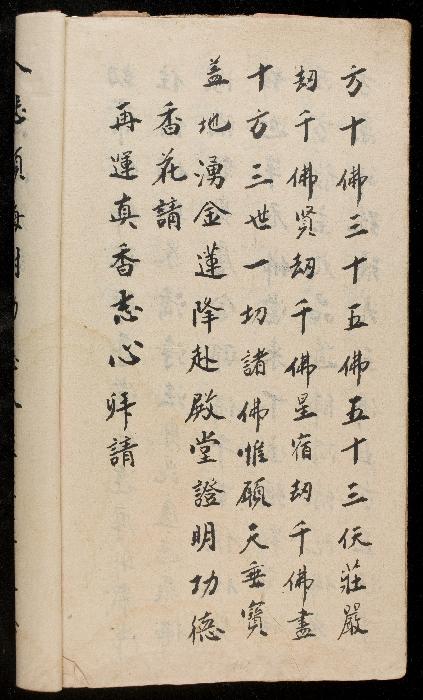 方十佛三十五佛五十三仸莊嚴
劫千佛賢劫千佛星宿劫千佛盡
十方三世一切諸佛惟願天垂寶
盖地湧金蓮降赴殿堂證明功德
香花請
再運真香志心拜請